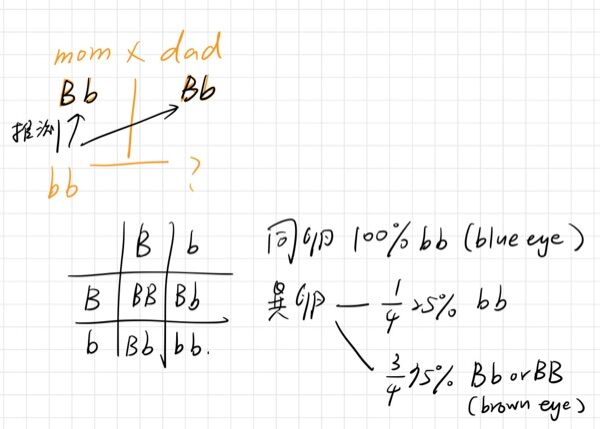 mom x dad
Bb Bb
推測
bb ?
B b
B BB Bb
b Bb bb.
同卵 100% bb (blue eye)
異卵 — 1/4 25% bb
3/4 75% Bb or BB
(brown eye)